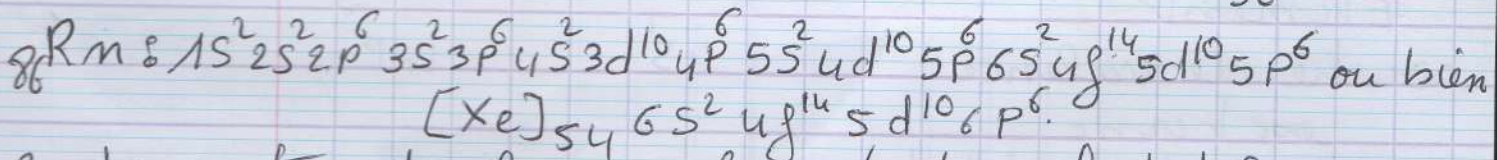 ₈₆Rn : 1s² 2s² 2p⁶ 3s² 3p⁶ 4s² 3d¹⁰ 4p⁶ 5s² 4d¹⁰ 5p⁶ 6s² 4f¹⁴ 5d¹⁰ 5p⁶ ou bien
[Xe]₅₄ 6s² 4f¹⁴ 5d¹⁰ 6p⁶.